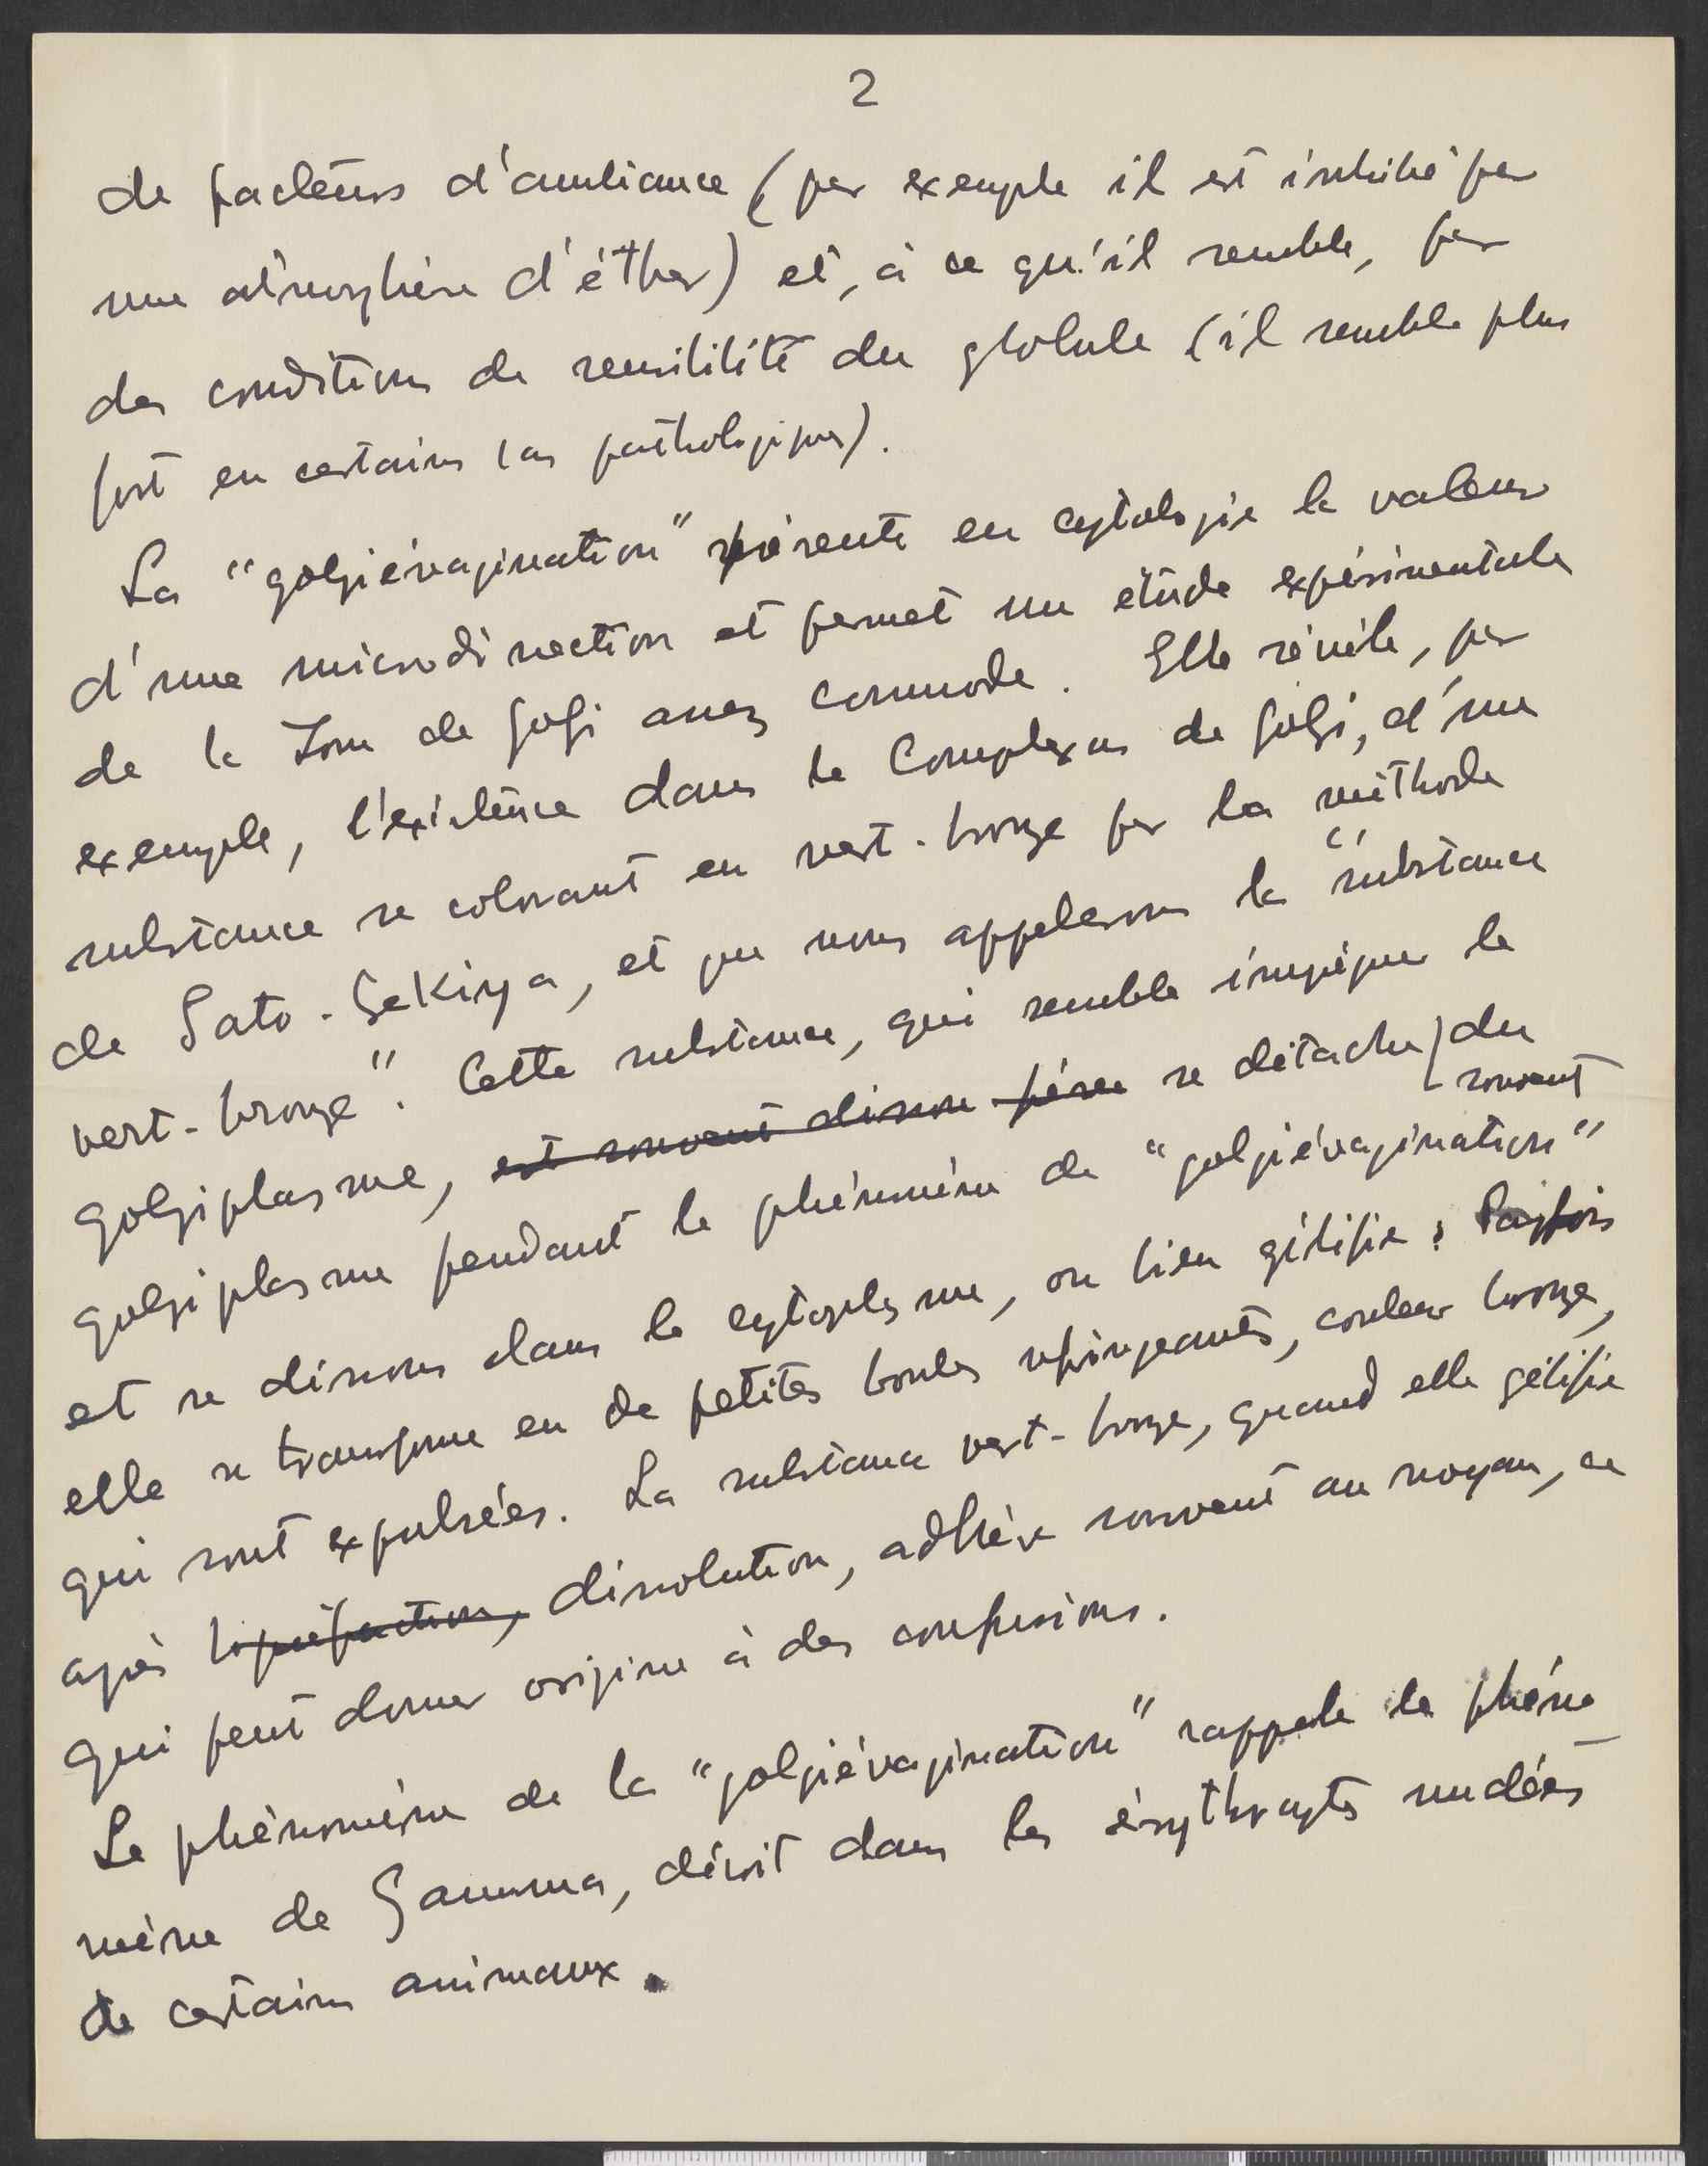 2
de facteurs d'ambiance (par exemple il est inhibé par
une atmosphère d'éther) et, à ce qu'il semble, par
des conditions de sensibilité du globule (il semble plus
fort en certains cas pathologiques).
La "golgiévagination" présente en cytologie la valeur
d'une microdissection et permet une étude expérimentale
de la Zone de Golgi assez commode. Elle révèle, par
exemple, l'existence dans le Complexus de Golgi, d'une
substance se colorant en vert-bronze par la méthode
de Sato-Sekiya, et que nous appelerons la "substance
vert-bronze". Cette substance, qui semble imprégner le
golgiplasme, est souvent dissou se détache du
souvent
golgiplasme pendant le phénomène de "golgiévagination"
et se dissous dans le cytoplasme, ou bien gélifie. Parfois
elle se transforme en de petites boules refringeantes, couleur bronze,
qui sont expulsées. La substance vert-bronze, quand elle gélifie
après liquéfaction, dissolution, adhère souvent au noyau, ce
qui peut donner origine à des confusions.
Le phénomène de la "golgiévagination" rappele le phéno
mène de Gamma, décrit dans les érythrocytes nucléés
de certains animaux.